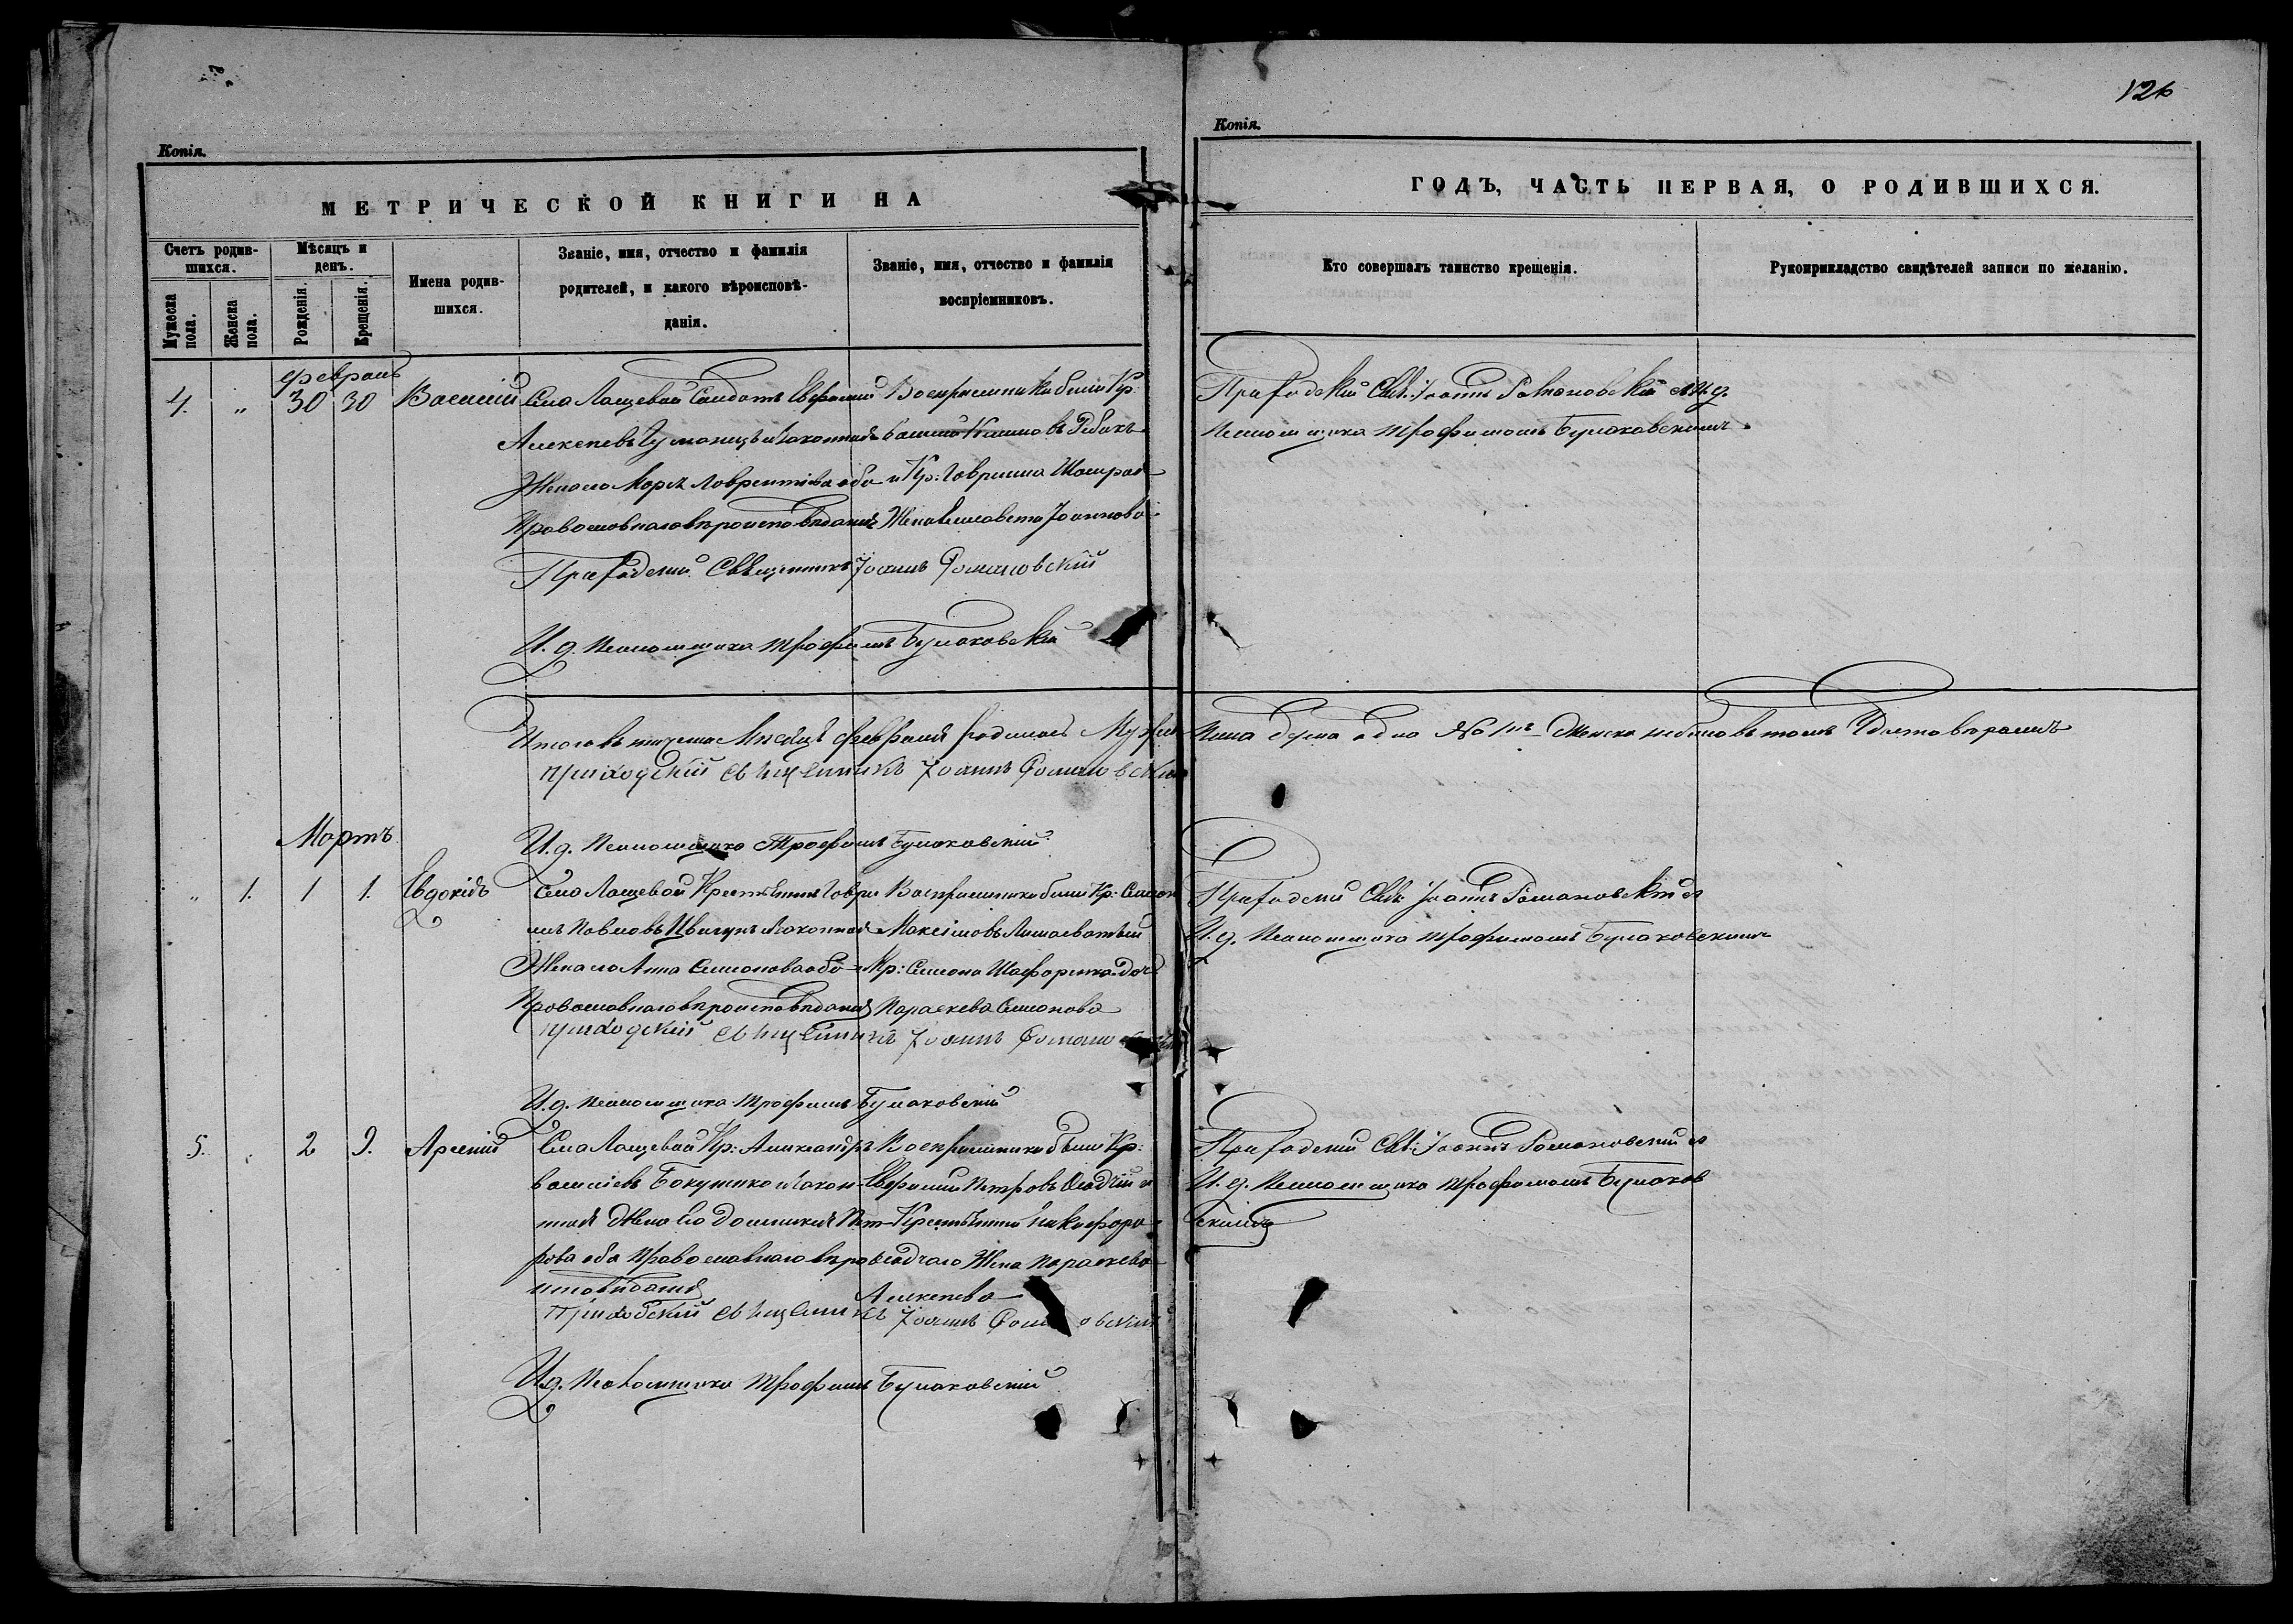 126
Копія.
Копія.
МЕТРИЧЕСКОЙ КНИГИ НА
ГОДЪ, ЧАСТЬ ПЕРВАЯ, О РОДИВШИХСЯ.
Счетъ родив-
шихся.
Мужеска
пола.
Женска
пола.
Мѣсяцъ и
день.
Рожденія.
Крещенія.
Имена родив-
шихся.
Званіе, имя, отчество и фамилія
родителей, и какого вѣроисповѣ-
данія.
Званіе, имя, отчество и фамилія
воспріемниковъ.
Кто совершалъ таинство крещенія.
Рукоприкладство свидѣтелей записи по желанію.
февраль
4. „ 30 30 Василій
Села Лащевой Солдатъ Евфимій
Алексеевъ и законная
Жена его Лаврентіева оба
Православнаго вѣроисповѣданія
Воспріемники были Кр:
и Кр: Гавриила
Жена Елисавета Іоаннова
Приходскій Свящ: Іоаннъ Романовскій с И. д.
Псаломщика Трофимомъ Булаковскимъ
Приходскій Священникъ Іоаннъ Романовскій
И. д. Псаломщика Трофимъ Булаковскій
Итого въ Мѣсяцѣ февралѣ родилось Мужеска Пола душа одна № 1й Женска небыло
Приходскій священникъ Іоаннъ Романовскій
И. д. Псаломщика Трофимъ Булаковскій
Мартъ
„ 1. 1 1. Евдокія
Села Лащевой Крестьянинъ Гаврі-
илъ Павловъ Цвигунъ и законная
Жена его Анна Симонова оба
Православнаго вѣроисповѣданія
Воспріемники были Кр: Симеонъ
Максимовъ
и Кр: Симеона дочь
Параскева Симонова
Приходскій Свящ: Іоаннъ Романовскій с
И. д. Псаломщика Трофимомъ Булаковскимъ
приходскій священникъ Іоаннъ
И. д. Псаломщика Трофимъ Булаковскій
5. 2 9. Арсеній
Села Лащевой Кр: Александръ
Васильевъ и закон-
ная Жена его Домникія Пет-
рова оба Православнаго вѣро-
исповѣданія
Воспріемники были Кр:
Евфимій Петровъ Осадчій и
Крестьянина Никифора
Осадчаго Жена Параскева
Алексеева
Приходскій Свящ: Іоаннъ Романовскій с
И. д. Псаломщика Трофимомъ Булаков
скимъ
Приходскій священникъ Іоаннъ
И. д. Псаломщика Трофимъ Булаковскій